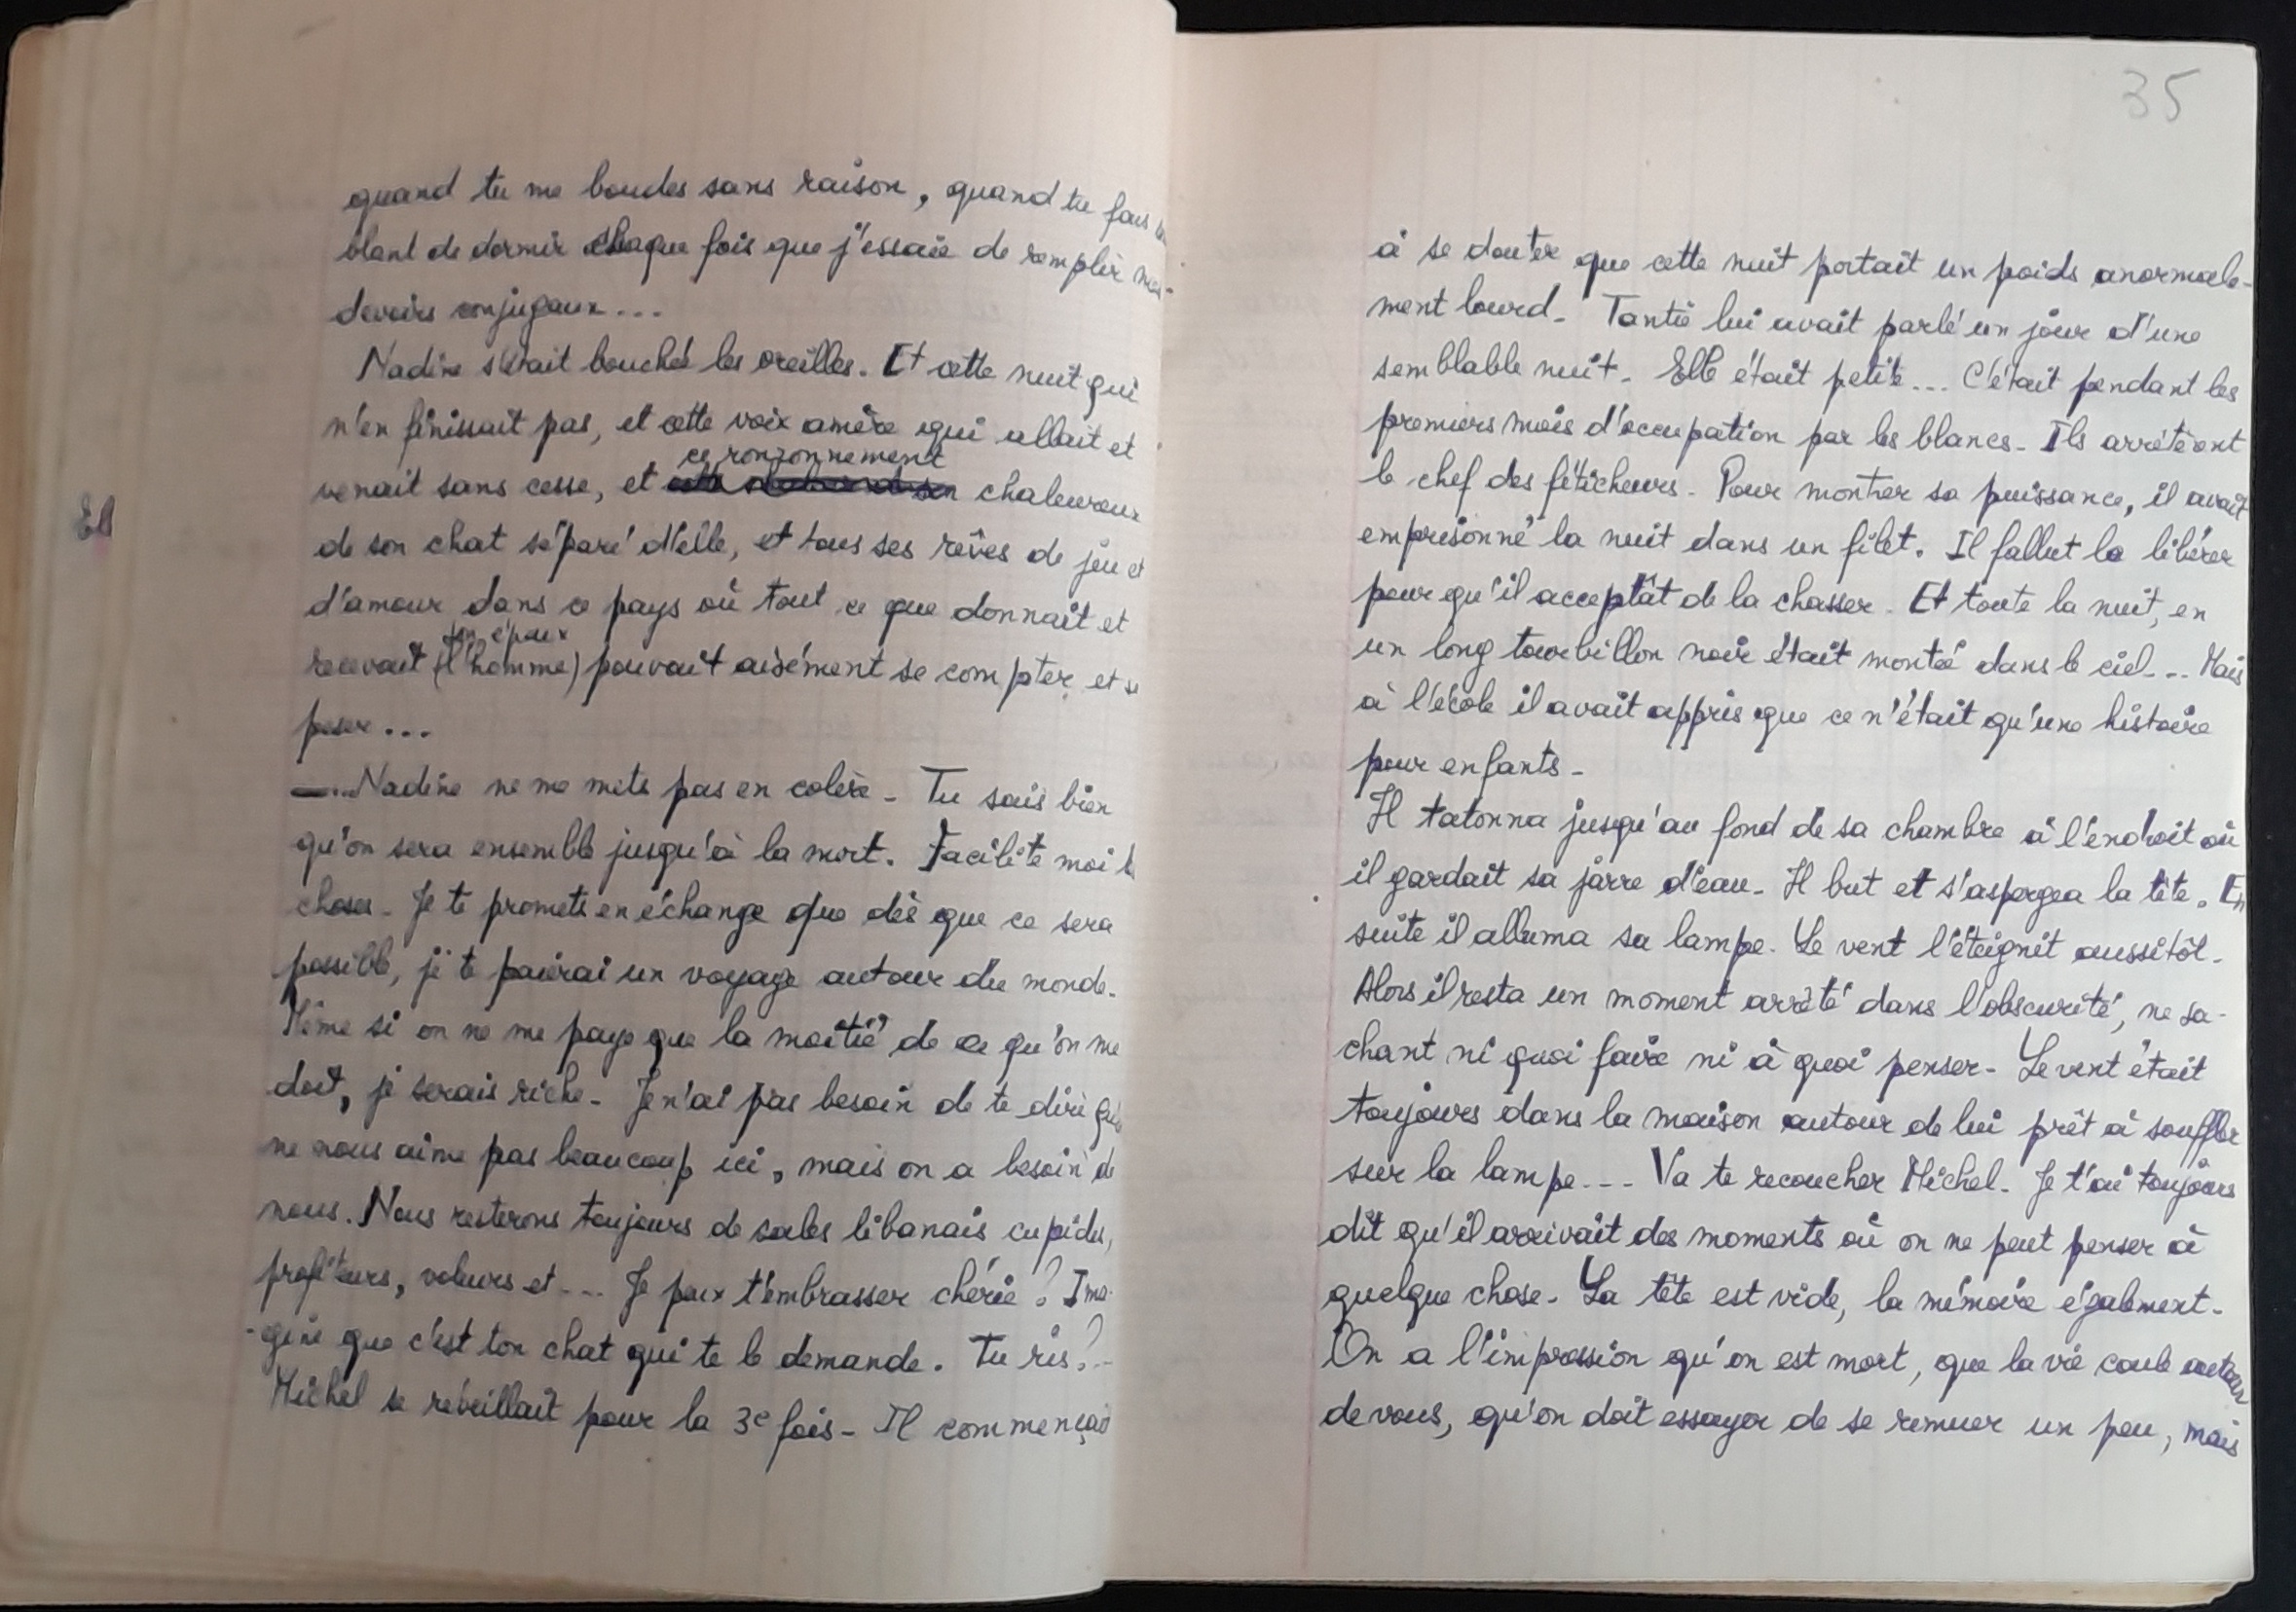 quand tu me boudes sans raison, quand tu fais
blant de dormir chaque fois que j'essaie de remplir mes
devoirs conjugaux...
Nadine s'était bouchée les oreilles. Et cette nuit qui
n'en finissait pas, et cette voix amère qui allait et
ce ronronnement
venait sans cesse, et chaleureux
de son chat séparé d'elle, et tous ses rêves de jeu et
d'amour dans ce pays où tout ce que donnait et
son époux
recevait (l'homme) pouvait aisément se compter et se
peser...
— Nadine ne me mets pas en colère - Tu sais bien
qu'on sera ensemble jusqu'à la mort. Facilite moi
choses - Je te promets en échange que dès que ce sera
possible, je te paierai un voyage autour du monde.
Même si on ne me paye que la moitié de ce qu'on me
doit, je serais riche - Je n'ai pas besoin de te dire qu'on
ne nous aime pas beaucoup ici, mais on a besoin de
nous. Nous resterons toujours de sales libanais cupides,
profiteurs, voleurs et... Je peux t'embrasser chérie? Ima-
-gine que c'est ton chat qui te le demande. Tu ris?..
Michel se réveillait pour la 3e fois - Il commençait
35
à se douter que cette nuit portait un poids anormale-
ment lourd - Tantie lui avait parlé un jour d'une
semblable nuit - Elle était petite... C'était pendant les
premiers mois d'occupation par les blancs - Ils arrêtèrent
le chef des féticheurs - Pour montrer sa puissance, il avait
emprisonné la nuit dans un filet. Il fallut le libérer
pour qu'il acceptât de la chasser - Et toute la nuit, en
un long tourbillon noir était montée dans le ciel... Mais
à l'école il avait appris que ce n'était qu'une histoire
pour enfants -
Il tatonna jusqu'au fond de sa chambre à l'endroit où
il gardait sa jarre d'eau - Il but et s'aspergea la tête. En
suite il alluma sa lampe - Le vent l'éteignit aussitôt -
Alors il resta un moment arrêté dans l'obscurité, ne sa-
chant ni quoi faire ni à quoi penser - Le vent était
toujours dans la maison autour de lui prêt à souffler
sur la lampe... Va te recoucher Michel - Je t'ai toujours
dit qu'il arrivait des moments où on ne peut penser à
quelque chose - La tête est vide, la mémoire également -
On a l'impression qu'on est mort, que la vie coule autour
de vous, qu'on doit essayer de se remuer un peu, mais